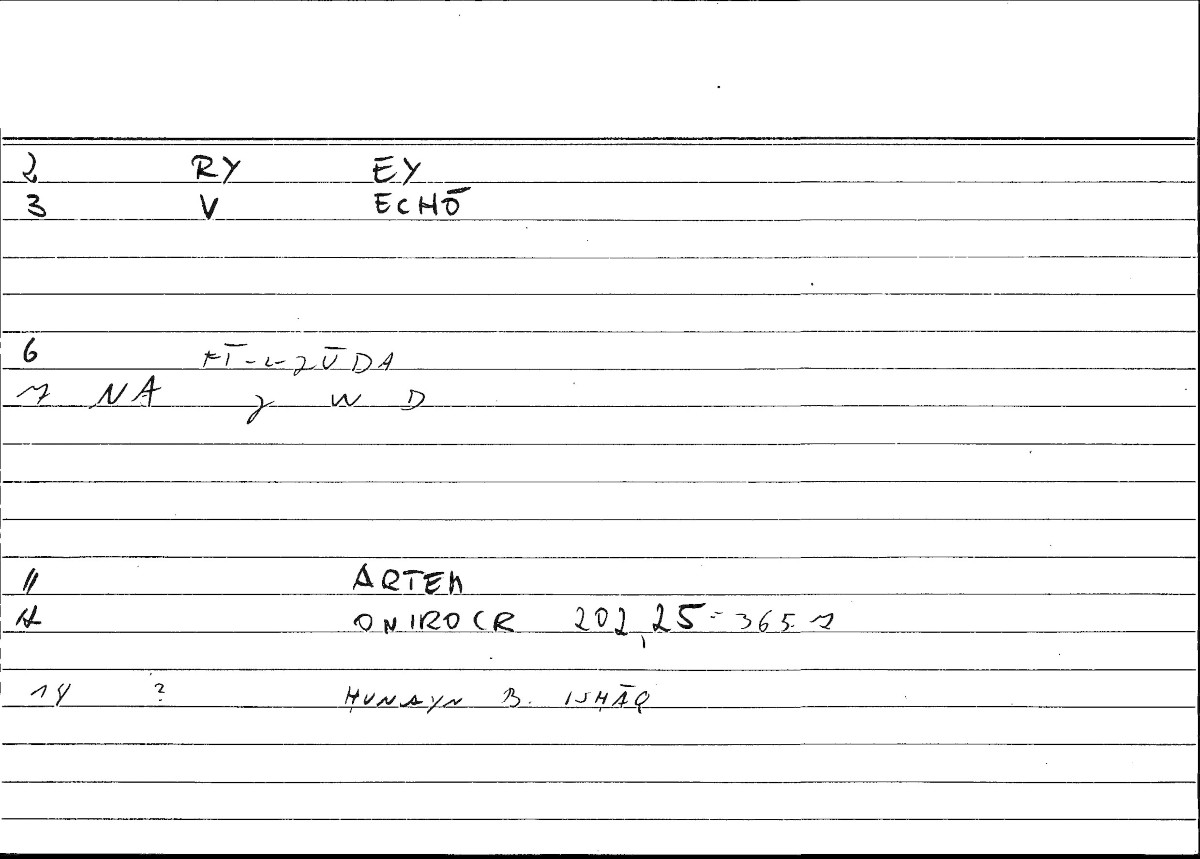 2 RY EY
3 V ECHŌ
6 FĪ-L-ǦŪDA
7 NA ǧ W D
11 ARTEM
12 ONIROCR 202,25 = 365.7
14 ? ḤUNAYN B. ISḤĀQ